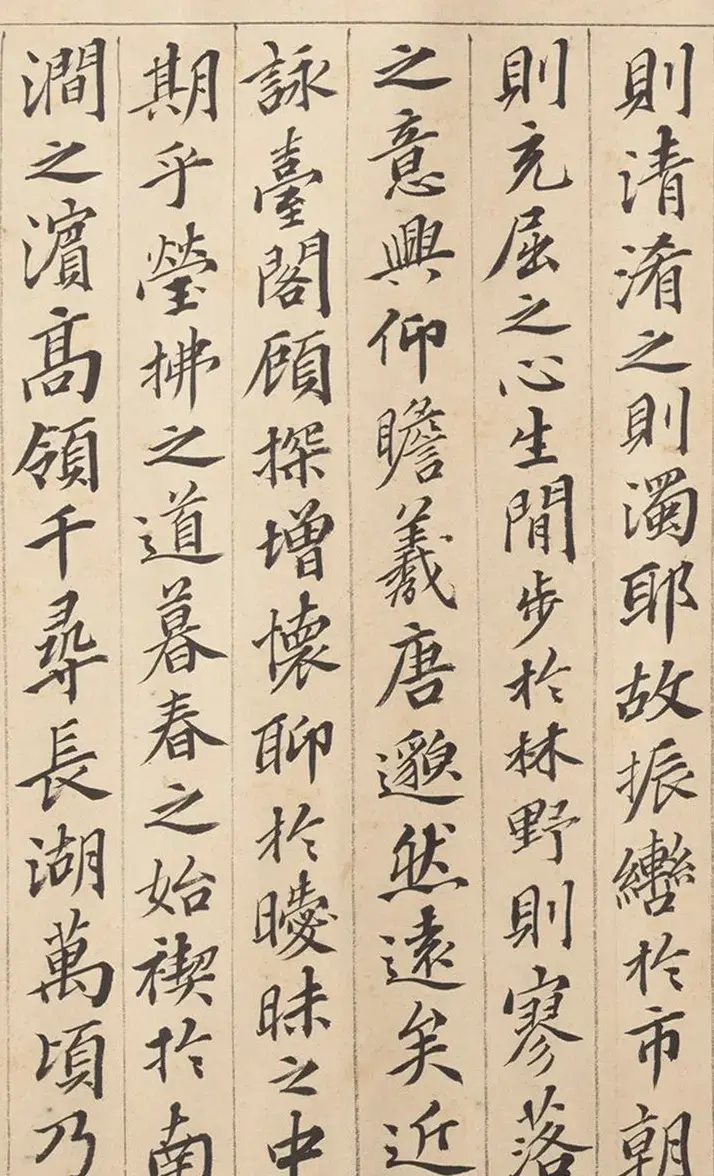 則清淆之則濁耶故振轡於市朝
則充屈之心生閒步於林野則寥落
之意興仰瞻羲唐邈然遠矣近
詠臺閣顧探增懷聊於曖昧之中
期乎瑩拂之道暮春之始禊於南
澗之濱高領千尋長湖萬頃乃